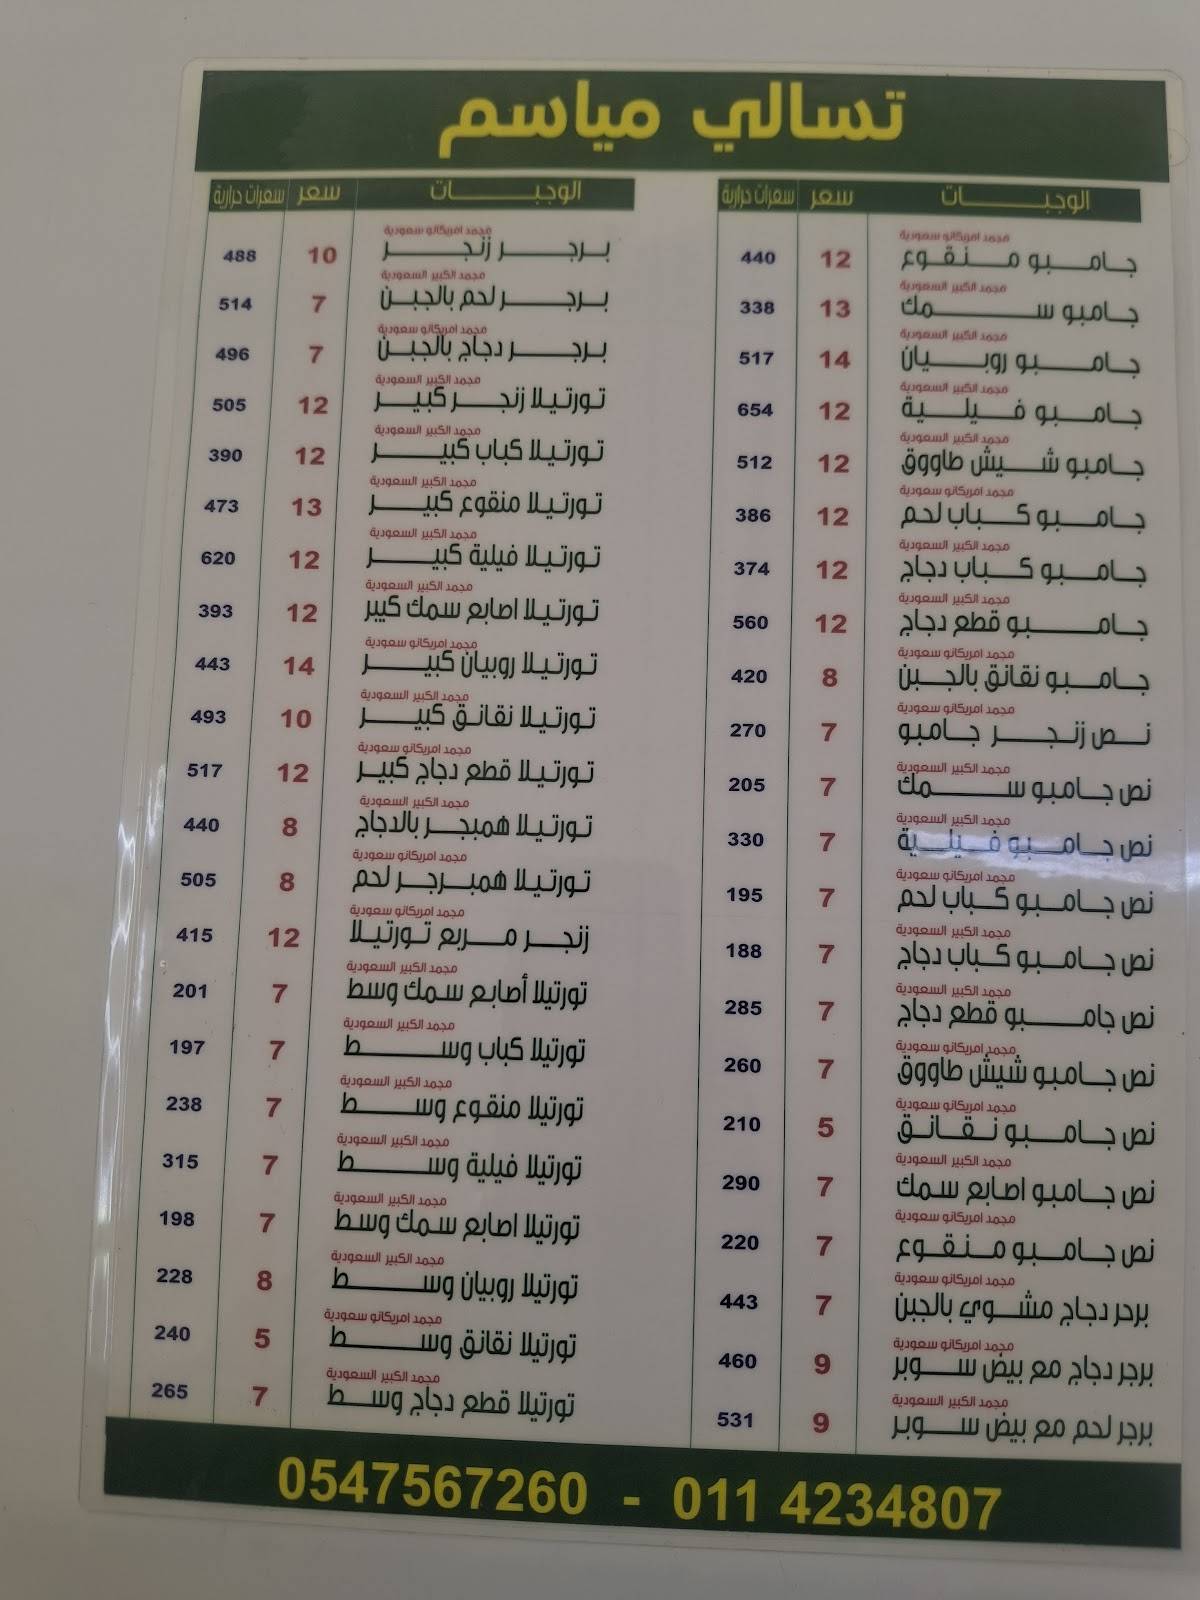 تسالي مياسم
الوجبات سعر سعرات حرارية
مجمد امريكانو سعودية
جامبو منقوع 12 440
مجمد الكبير السعودية
جامبو سمك 13 338
مجمد الكبير السعودية
جامبو روبيان 14 517
مجمد الكبير السعودية
جامبو فيلية 12 654
مجمد الكبير السعودية
جامبو شيش طاووق 12 512
مجمد امريكانو سعودية
جامبو كباب لحم 12 386
مجمد الكبير السعودية
جامبو كباب دجاج 12 374
مجمد الكبير السعودية
جامبو قطع دجاج 12 560
مجمد امريكانو سعودية
جامبو نقانق بالجبن 8 420
مجمد امريكانو سعودية
نص زنجر جامبو 7 270
مجمد الكبير السعودية
نص جامبو سمك 7 205
مجمد الكبير السعودية
نص جامبو فيلية 7 330
مجمد امريكانو سعودية
نص جامبو كباب لحم 7 195
مجمد الكبير السعودية
نص جامبو كباب دجاج 7 188
مجمد الكبير السعودية
نص جامبو قطع دجاج 7 285
مجمد امريكانو سعودية
نص جامبو شيش طاووق 7 260
مجمد امريكانو سعودية
نص جامبو نقانق 5 210
مجمد الكبير السعودية
نص جامبو اصابع سمك 7 290
مجمد امريكانو سعودية
نص جامبو منقوع 7 220
مجمد امريكانو سعودية
برجر دجاج مشوي بالجبن 7 443
مجمد امريكانو سعودية
برجر دجاج مع بيض سوبر 9 460
مجمد الكبير السعودية
برجر لحم مع بيض سوبر 9 531
الوجبات سعر سعرات حرارية
مجمد امريكانو سعودية
برجر زنجر 10 488
مجمد الكبير السعودية
برجر لحم بالجبن 7 514
مجمد امريكانو سعودية
برجر دجاج بالجبن 7 496
مجمد الكبير السعودية
تورتيلا زنجر كبير 12 505
مجمد الكبير السعودية
تورتيلا كباب كبير 12 390
مجمد الكبير السعودية
تورتيلا منقوع كبير 13 473
مجمد الكبير السعودية
تورتيلا فيلية كبير 12 620
مجمد الكبير السعودية
تورتيلا اصابع سمك كبير 12 393
مجمد امريكانو سعودية
تورتيلا روبيان كبير 14 443
مجمد الكبير السعودية
تورتيلا نقانق كبير 10 493
مجمد امريكانو سعودية
تورتيلا قطع دجاج كبير 12 517
مجمد الكبير السعودية
تورتيلا همبجر بالدجاج 8 440
مجمد امريكانو سعودية
تورتيلا همبرجر لحم 8 505
مجمد امريكانو سعودية
زنجر مربع تورتيلا 12 415
مجمد الكبير السعودية
تورتيلا أصابع سمك وسط 7 201
مجمد الكبير السعودية
تورتيلا كباب وسط 7 197
مجمد الكبير السعودية
تورتيلا منقوع وسط 7 238
مجمد الكبير السعودية
تورتيلا فيلية وسط 7 315
مجمد الكبير السعودية
تورتيلا اصابع سمك وسط 7 198
مجمد الكبير السعودية
تورتيلا روبيان وسط 8 228
مجمد امريكانو سعودية
تورتيلا نقانق وسط 5 240
مجمد الكبير السعودية
تورتيلا قطع دجاج وسط 7 265
0547567260 - 011 4234807